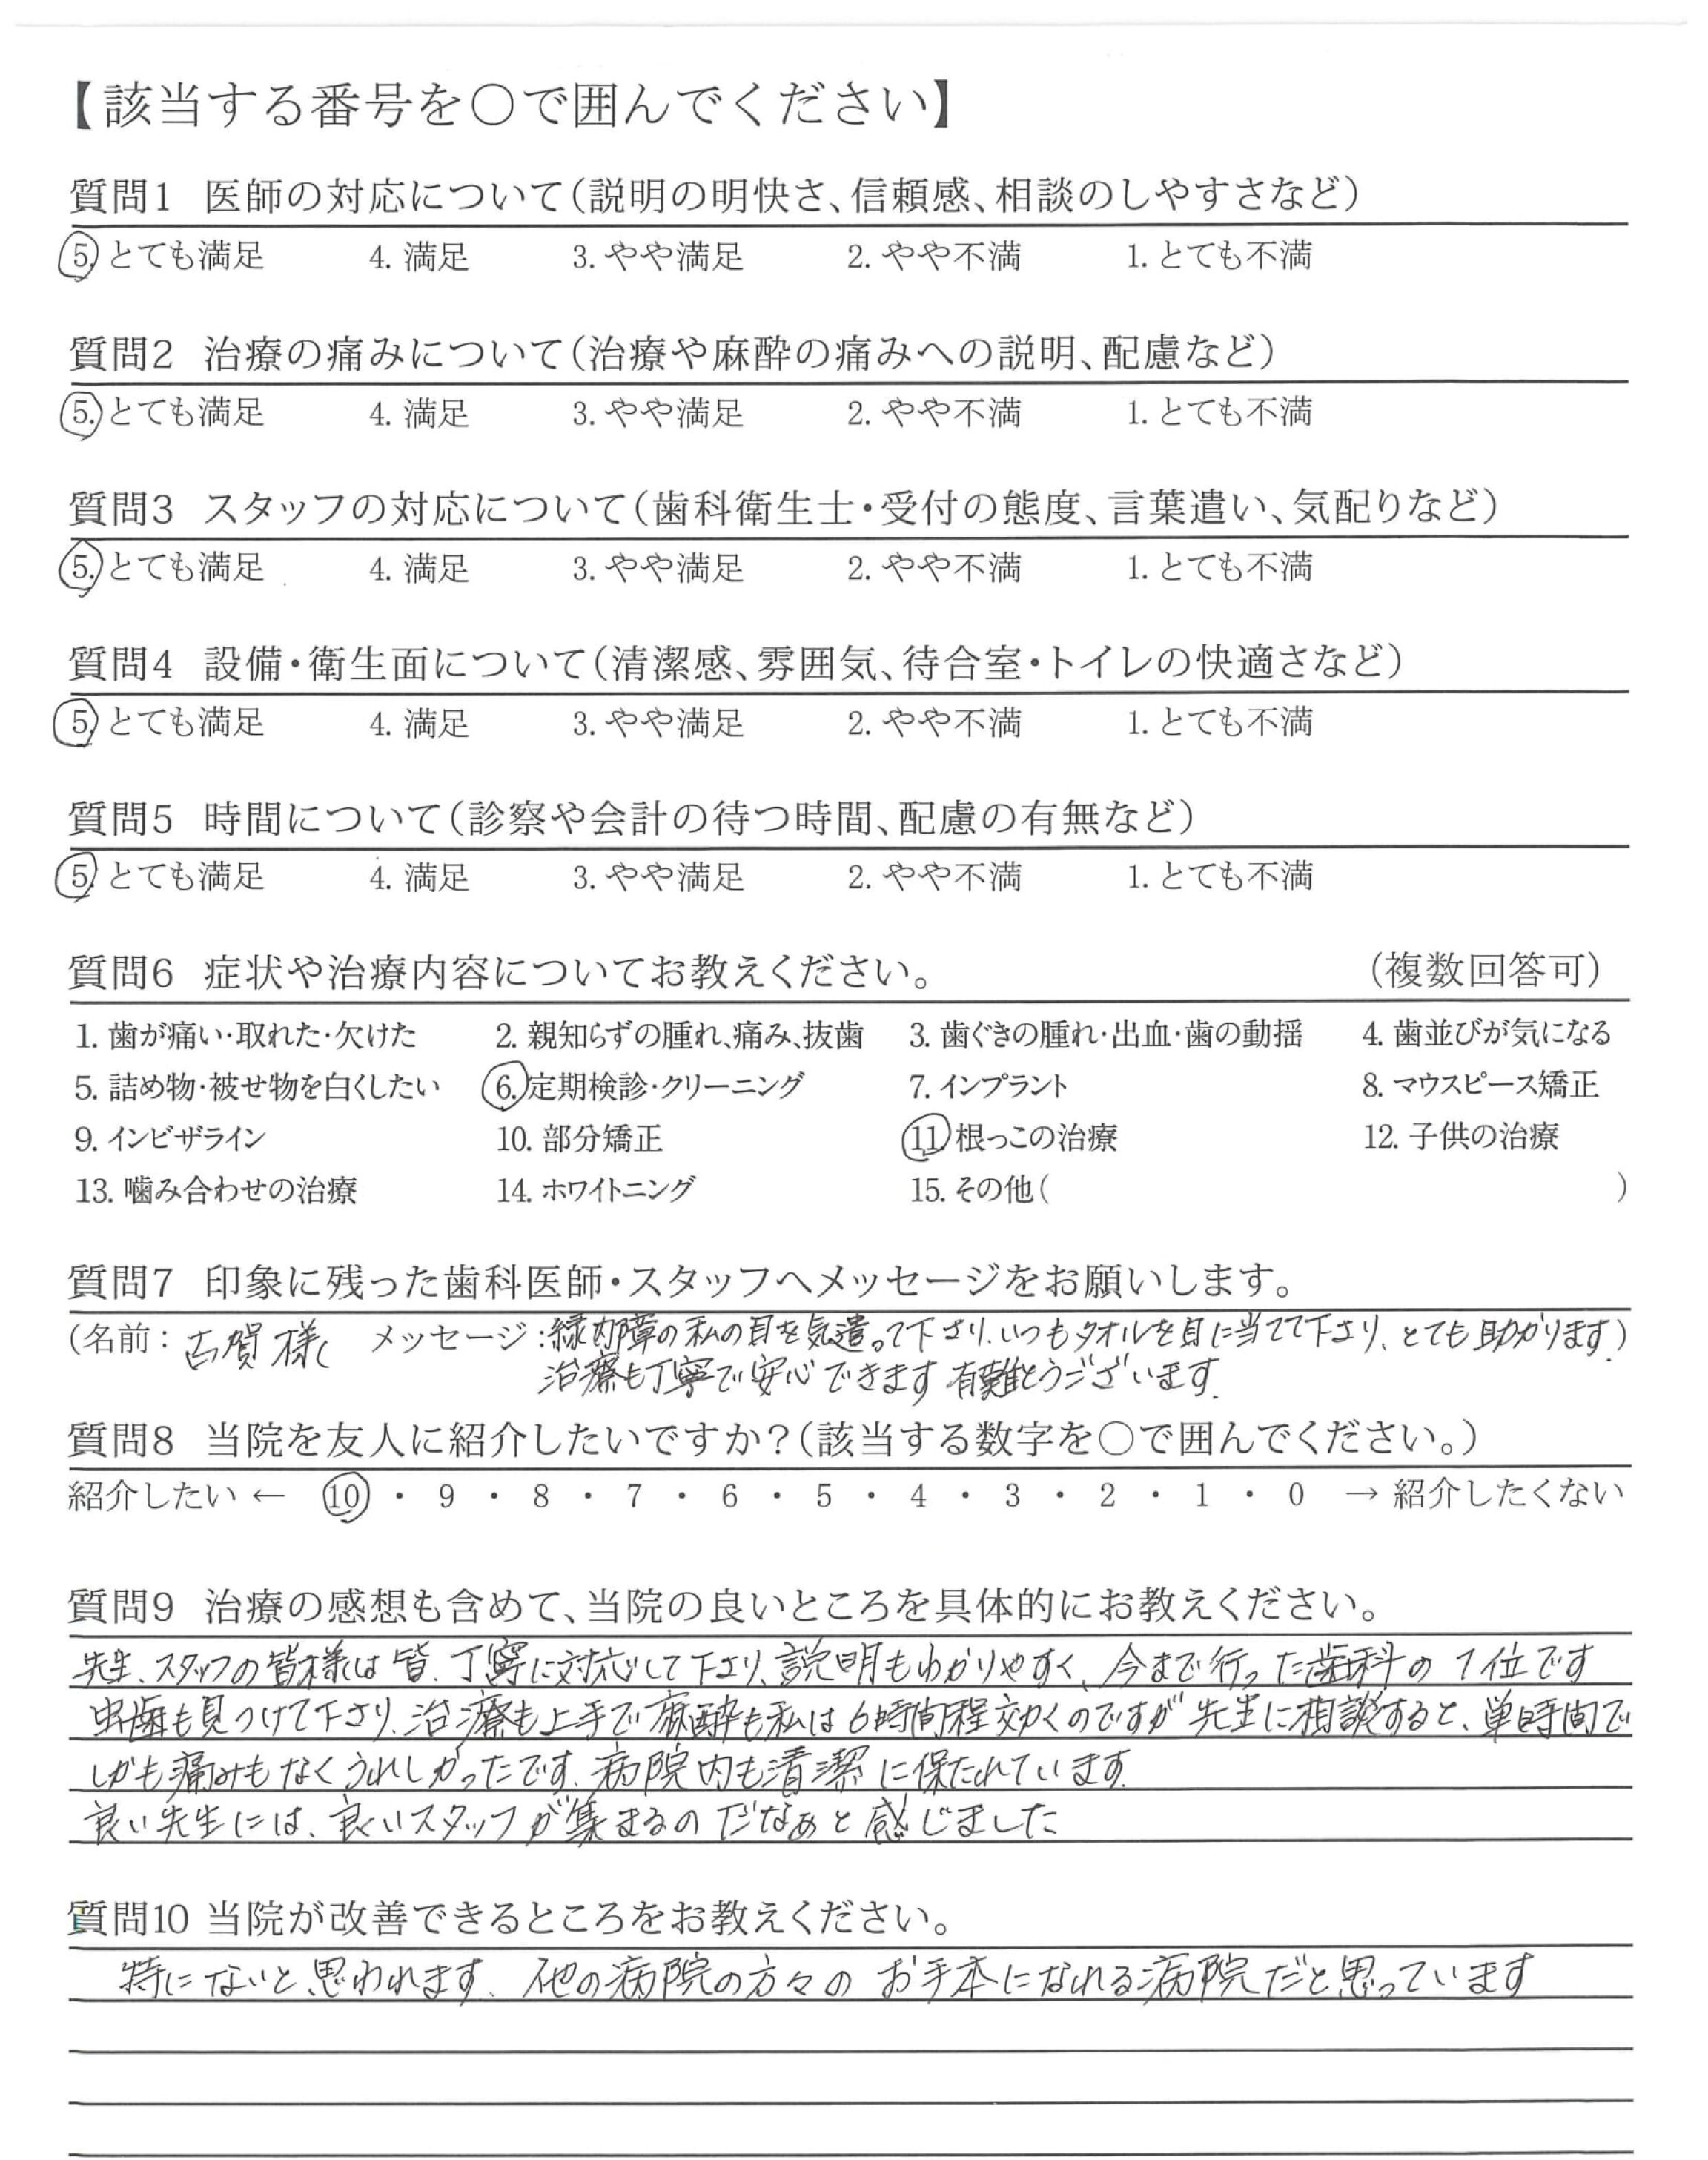 【該当する番号を○で囲んでください】
質問1 医師の対応について（説明の明快さ、信頼感、相談のしやすさなど）
5. とても満足 4. 満足 3. やや満足 2. やや不満 1. とても不満
質問2 治療の痛みについて（治療や麻酔の痛みへの説明、配慮など）
5. とても満足 4. 満足 3. やや満足 2. やや不満 1. とても不満
質問3 スタッフの対応について（歯科衛生士・受付の態度、言葉遣い、気配りなど）
5. とても満足 4. 満足 3. やや満足 2. やや不満 1. とても不満
質問4 設備・衛生面について（清潔感、雰囲気、待合室・トイレの快適さなど）
5. とても満足 4. 満足 3. やや満足 2. やや不満 1. とても不満
質問5 時間について（診察や会計の待つ時間、配慮の有無など）
5. とても満足 4. 満足 3. やや満足 2. やや不満 1. とても不満
質問6 症状や治療内容についてお教えください。 （複数回答可）
1. 歯が痛い・取れた・欠けた 2. 親知らずの腫れ、痛み、抜歯 3. 歯ぐきの腫れ・出血・歯の動揺 4. 歯並びが気になる
5. 詰め物・被せ物を白くしたい 6. 定期検診・クリーニング 7. インプラント 8. マウスピース矯正
9. インビザライン 10. 部分矯正 11. 根っこの治療 12. 子供の治療
13. 噛み合わせの治療 14. ホワイトニング 15. その他（ ）
質問7 印象に残った歯科医師・スタッフへメッセージをお願いします。
（名前： 古賀様 メッセージ：緑内障の私の目を気遣って下さり、いつもタオルを目に当てて下さり、とても助かります）
治療も丁寧で安心できます 有難とうございます。
質問8 当院を友人に紹介したいですか？（該当する数字を○で囲んでください。）
紹介したい ← 10 ・ 9 ・ 8 ・ 7 ・ 6 ・ 5 ・ 4 ・ 3 ・ 2 ・ 1 ・ 0 → 紹介したくない
質問9 治療の感想も含めて、当院の良いところを具体的にお教えください。
先生、スタッフの皆様は皆、丁寧に対応して下さり、説明もわかりやすく、今まで行った歯科の1位です
虫歯も見つけて下さり、治療も上手で麻酔も私は6時間程効くのですが 先生に相談すると、単時間で
しかも痛みもなくうれしかったです。病院内も清潔に保たれています。
良い先生には、良いスタッフが集まるのだなぁと感じました
質問10 当院が改善できるところをお教えください。
特にないと思われます。他の病院の方々の お手本になれる病院だと思っています